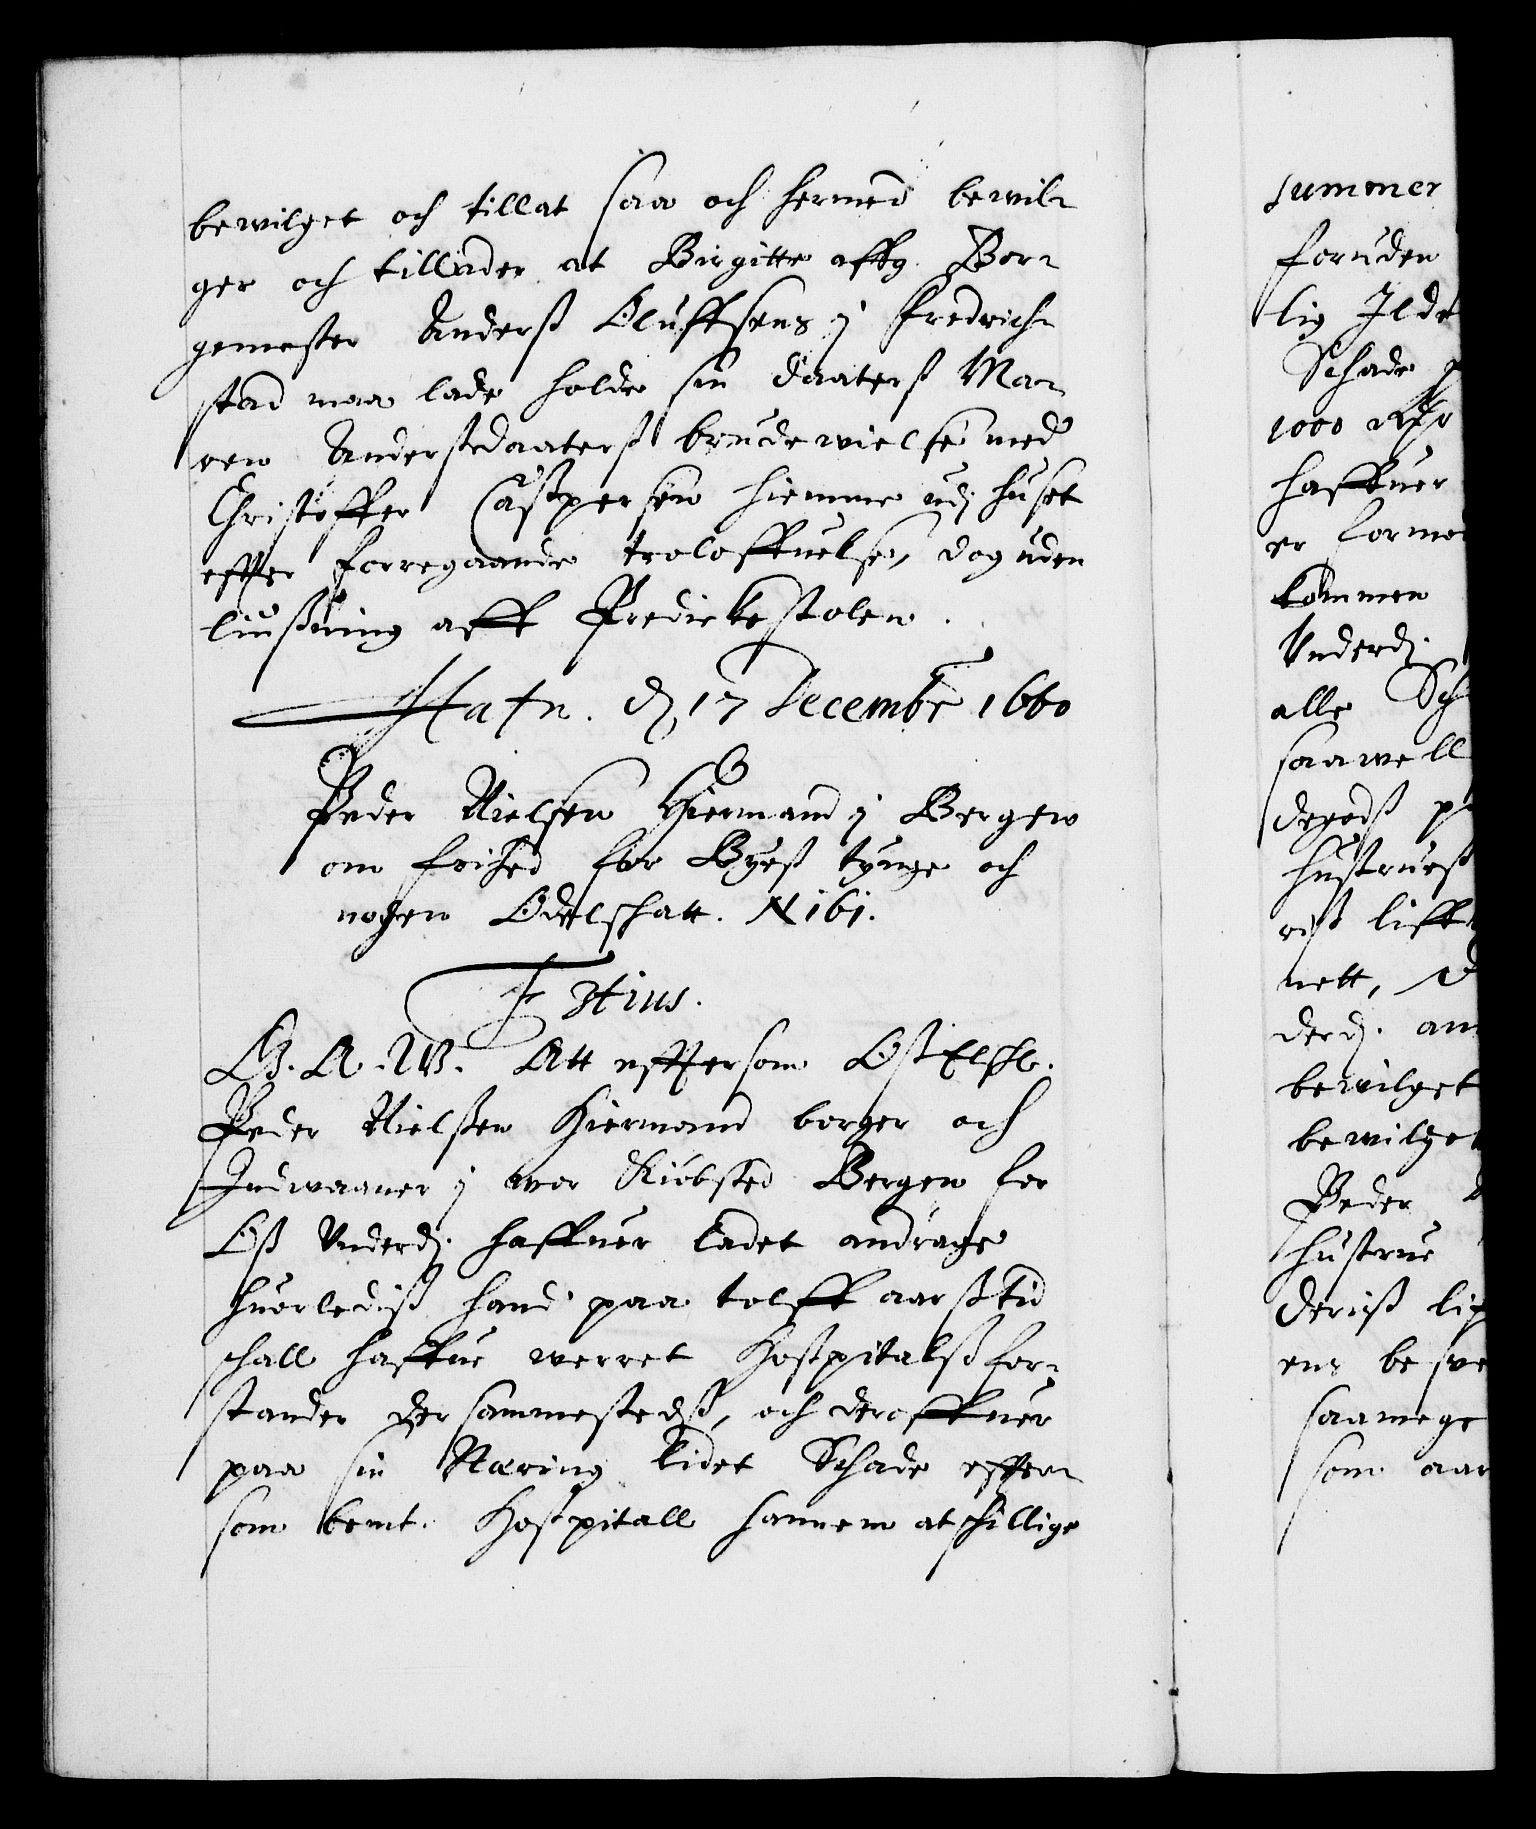 bewilget och tillat saa och hermed bewil-
ger och tillader at Birgitte affg. Bor-
gemester Anderß Oluffsens j Fredrich-
stad maa lade holde sin daaterß Ma-
ren Anderßdaaterß brudewielse med
Christoffer Caßpersen hiemme udj huset
effter forregaande troloffuelse, dog uden
liußning aff Predickestolen.
Hafn. dj 17 Decembr 1660
Peder Nielsen Hiermand j Bergen
om frihed for Byeß tynge och
nogen Odelschatt. N 161.
F 3tius.
G. A. W. Att efftersom Oß Elschl.
Peder Nielßen Hiermand borger och
Indwaaner j wor Kiöbsted Bergen for
Oß Underdj. haffuer ladet andrage
huorlediß hand paa tolff aarß tid
schall haffue werret Hoßpitalß for-
stander dersammestedß, och deroffuer
paa sin Næring lidet Schade effter-
som bemt. Hoßpitall hannem atschillige
summer
foruden
lig Ilde
Schade
1000 Rdr
haffuer
er forme
kommen
Underdj.
alle Sch
saawell
degodß p
hustrueß
riß liff
nett,
derdj. an
bewilget
bewilge
Peder
hustrue
deriß li
ens beswe
saamege
som aar